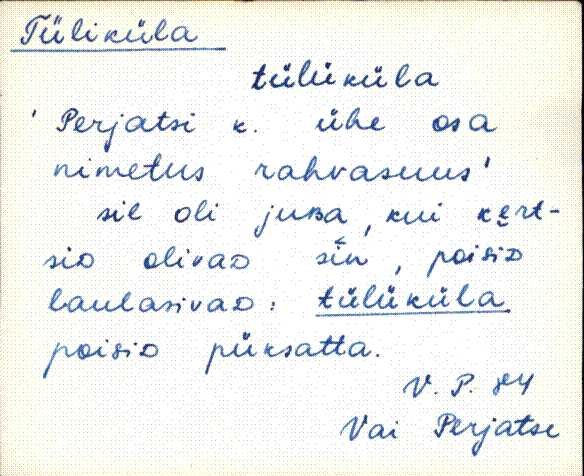 Tüliküla
tülüküla
' Perjatsi k. ühe osa
nimetus rahvasuus'
sil oli juʙa, kui kert-
siᴅ olivaᴅ siń, poisiᴅ
laulasivaᴅ: tülüküla
poisiᴅ püksatta.
V. P. 84
Vai Perjatse